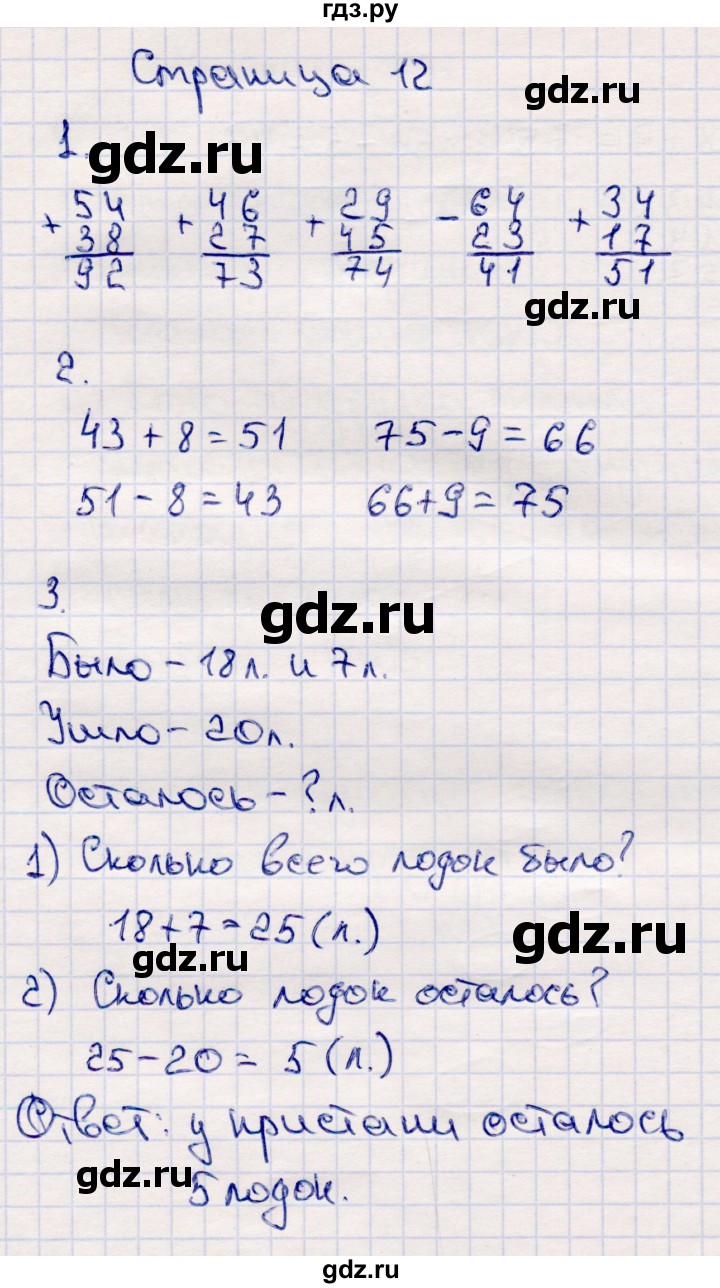 гдз.ру
Страница 12
gdz.ru
1.
gdz.ru
+ 54 + 46 + 29 - 64 + 34
38 27 45 23 17
92 73 74 41 51
gdz.ru
2.
43 + 8 = 51 75 - 9 = 66
51 - 8 = 43 66 + 9 = 75
3.
gdz.ru
Было - 18 л. и 7 л.
Ушло - 20 л.
Осталось - ? л.
1) Сколько всего лодок было?
18 + 7 = 25 (л.)
gdz.ru
gdz.ru
2) Сколько лодок осталось?
25 - 20 = 5 (л.)
Ответ: у пристани осталось
gdz.ru
5 лодок.
gdz.ru